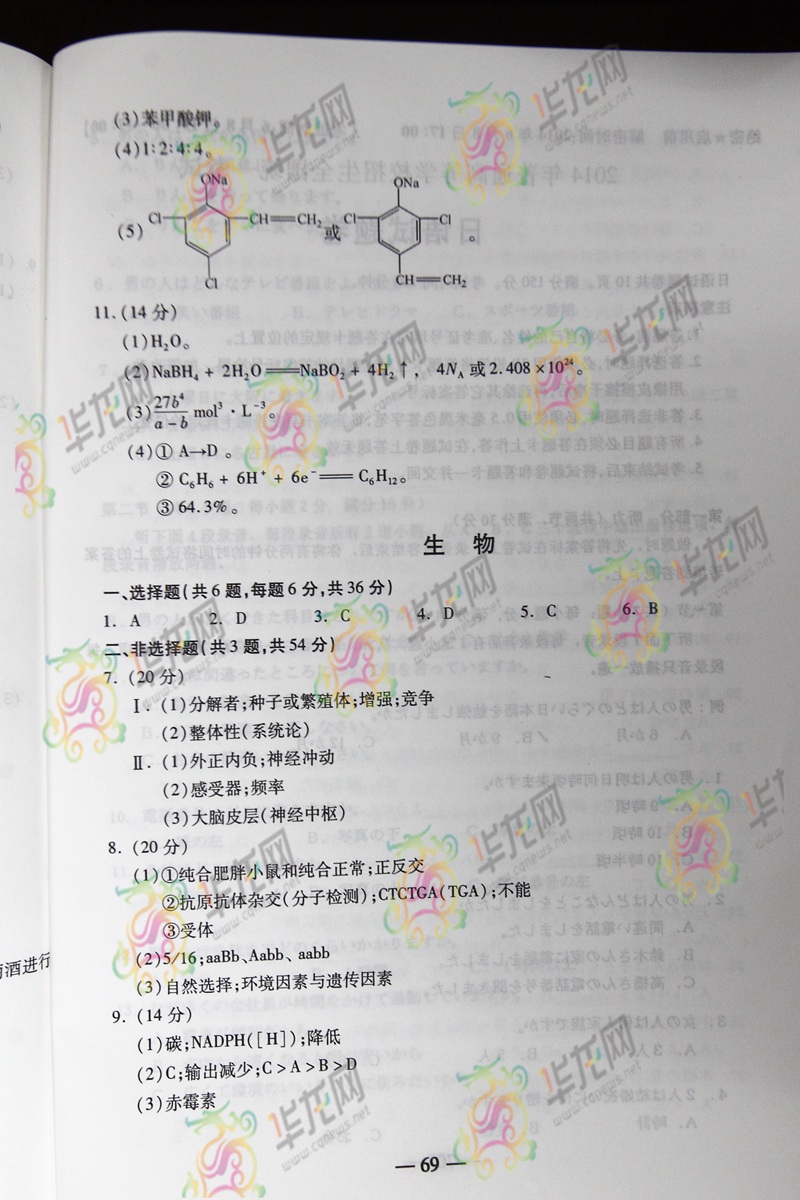 (3)苯甲酸钾。
(4)1∶2∶4∶4。
ONa
ONa
(5) Cl CH═CH₂ 或 Cl Cl 。
Cl CH═CH₂
11.(14分)
(1)H₂O。
(2)NaBH₄ + 2H₂O═NaBO₂ + 4H₂↑, 4Nₐ或2.408×10²⁴。
(3)27b⁴/(a-b) mol³·L⁻³。
(4)① A→D 。
② C₆H₆ + 6H⁺ + 6e⁻═C₆H₁₂。
③ 64.3%。
生 物
一、选择题(共6题,每题6分,共36分)
1. A 2. D 3. C 4. D 5. C 6. B
二、非选择题(共3题,共54分)
7. (20分)
Ⅰ. (1)分解者;种子或繁殖体;增强;竞争
(2)整体性(系统论)
Ⅱ. (1)外正内负;神经冲动
(2)感受器;频率
(3)大脑皮层(神经中枢)
8. (20分)
(1)①纯合肥胖小鼠和纯合正常;正反交
②抗原抗体杂交(分子检测);CTCTGA(TGA);不能
③受体
(2)5/16;aaBb、Aabb、aabb
(3)自然选择;环境因素与遗传因素
9. (14分)
(1)碳;NADPH([H]);降低
(2)C;输出减少;C>A>B>D
(3)赤霉素
萄酒进行
— 69 —
华龙网
www.cqnews.net